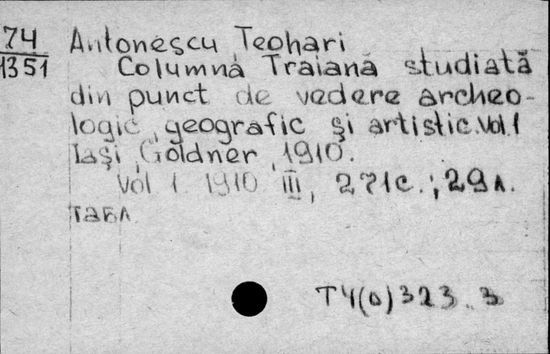 74
1351
Antonescu, Teohari
Columna Traiană studiată
din punct de vedere archeo-
logic, geografic și artistic. Vol. 1
Iași, Goldner, 1910.
Vol 1. 1910. III, 271с.; 29л.
табл.
T4(0)323.3